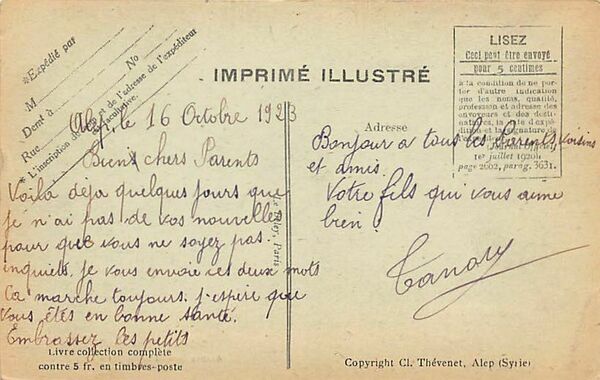 *Expédié par
M
No
Demt à
Rue
*L'inscription de l'adresse de l'expéditeur
est facultative.
IMPRIMÉ ILLUSTRÉ
LISEZ
Ceci peut être envoyé
pour 5 centimes
à la condition de ne por-
ter d'autre indication
que les noms, qualité,
profession et adresse des
envoyeurs et des desti-
nataires, la date d'expé
et la signature de
Journal Officiel
1er juillet 1920
page 2662, parag. 3631.
Alep, le 16 Octobre 1923
Bien chers Parents
Voila déja quelques jours que
je n'ai pas de vos nouvelles
pour que vous ne soyez pas
inquiets. je vous envoie ces deux mots
Ca marche toujours. j'espère que
vous êtes en bonne santé.
Embrassez les petits
Adresse
Bonjour a tous les Parents, voisins
et amis.
Votre fils qui vous aime
bien.
Canary
Paris
Livre collection complète
contre 5 fr. en timbres-poste
Copyright Cl. Thévenet, Alep (Syrie)